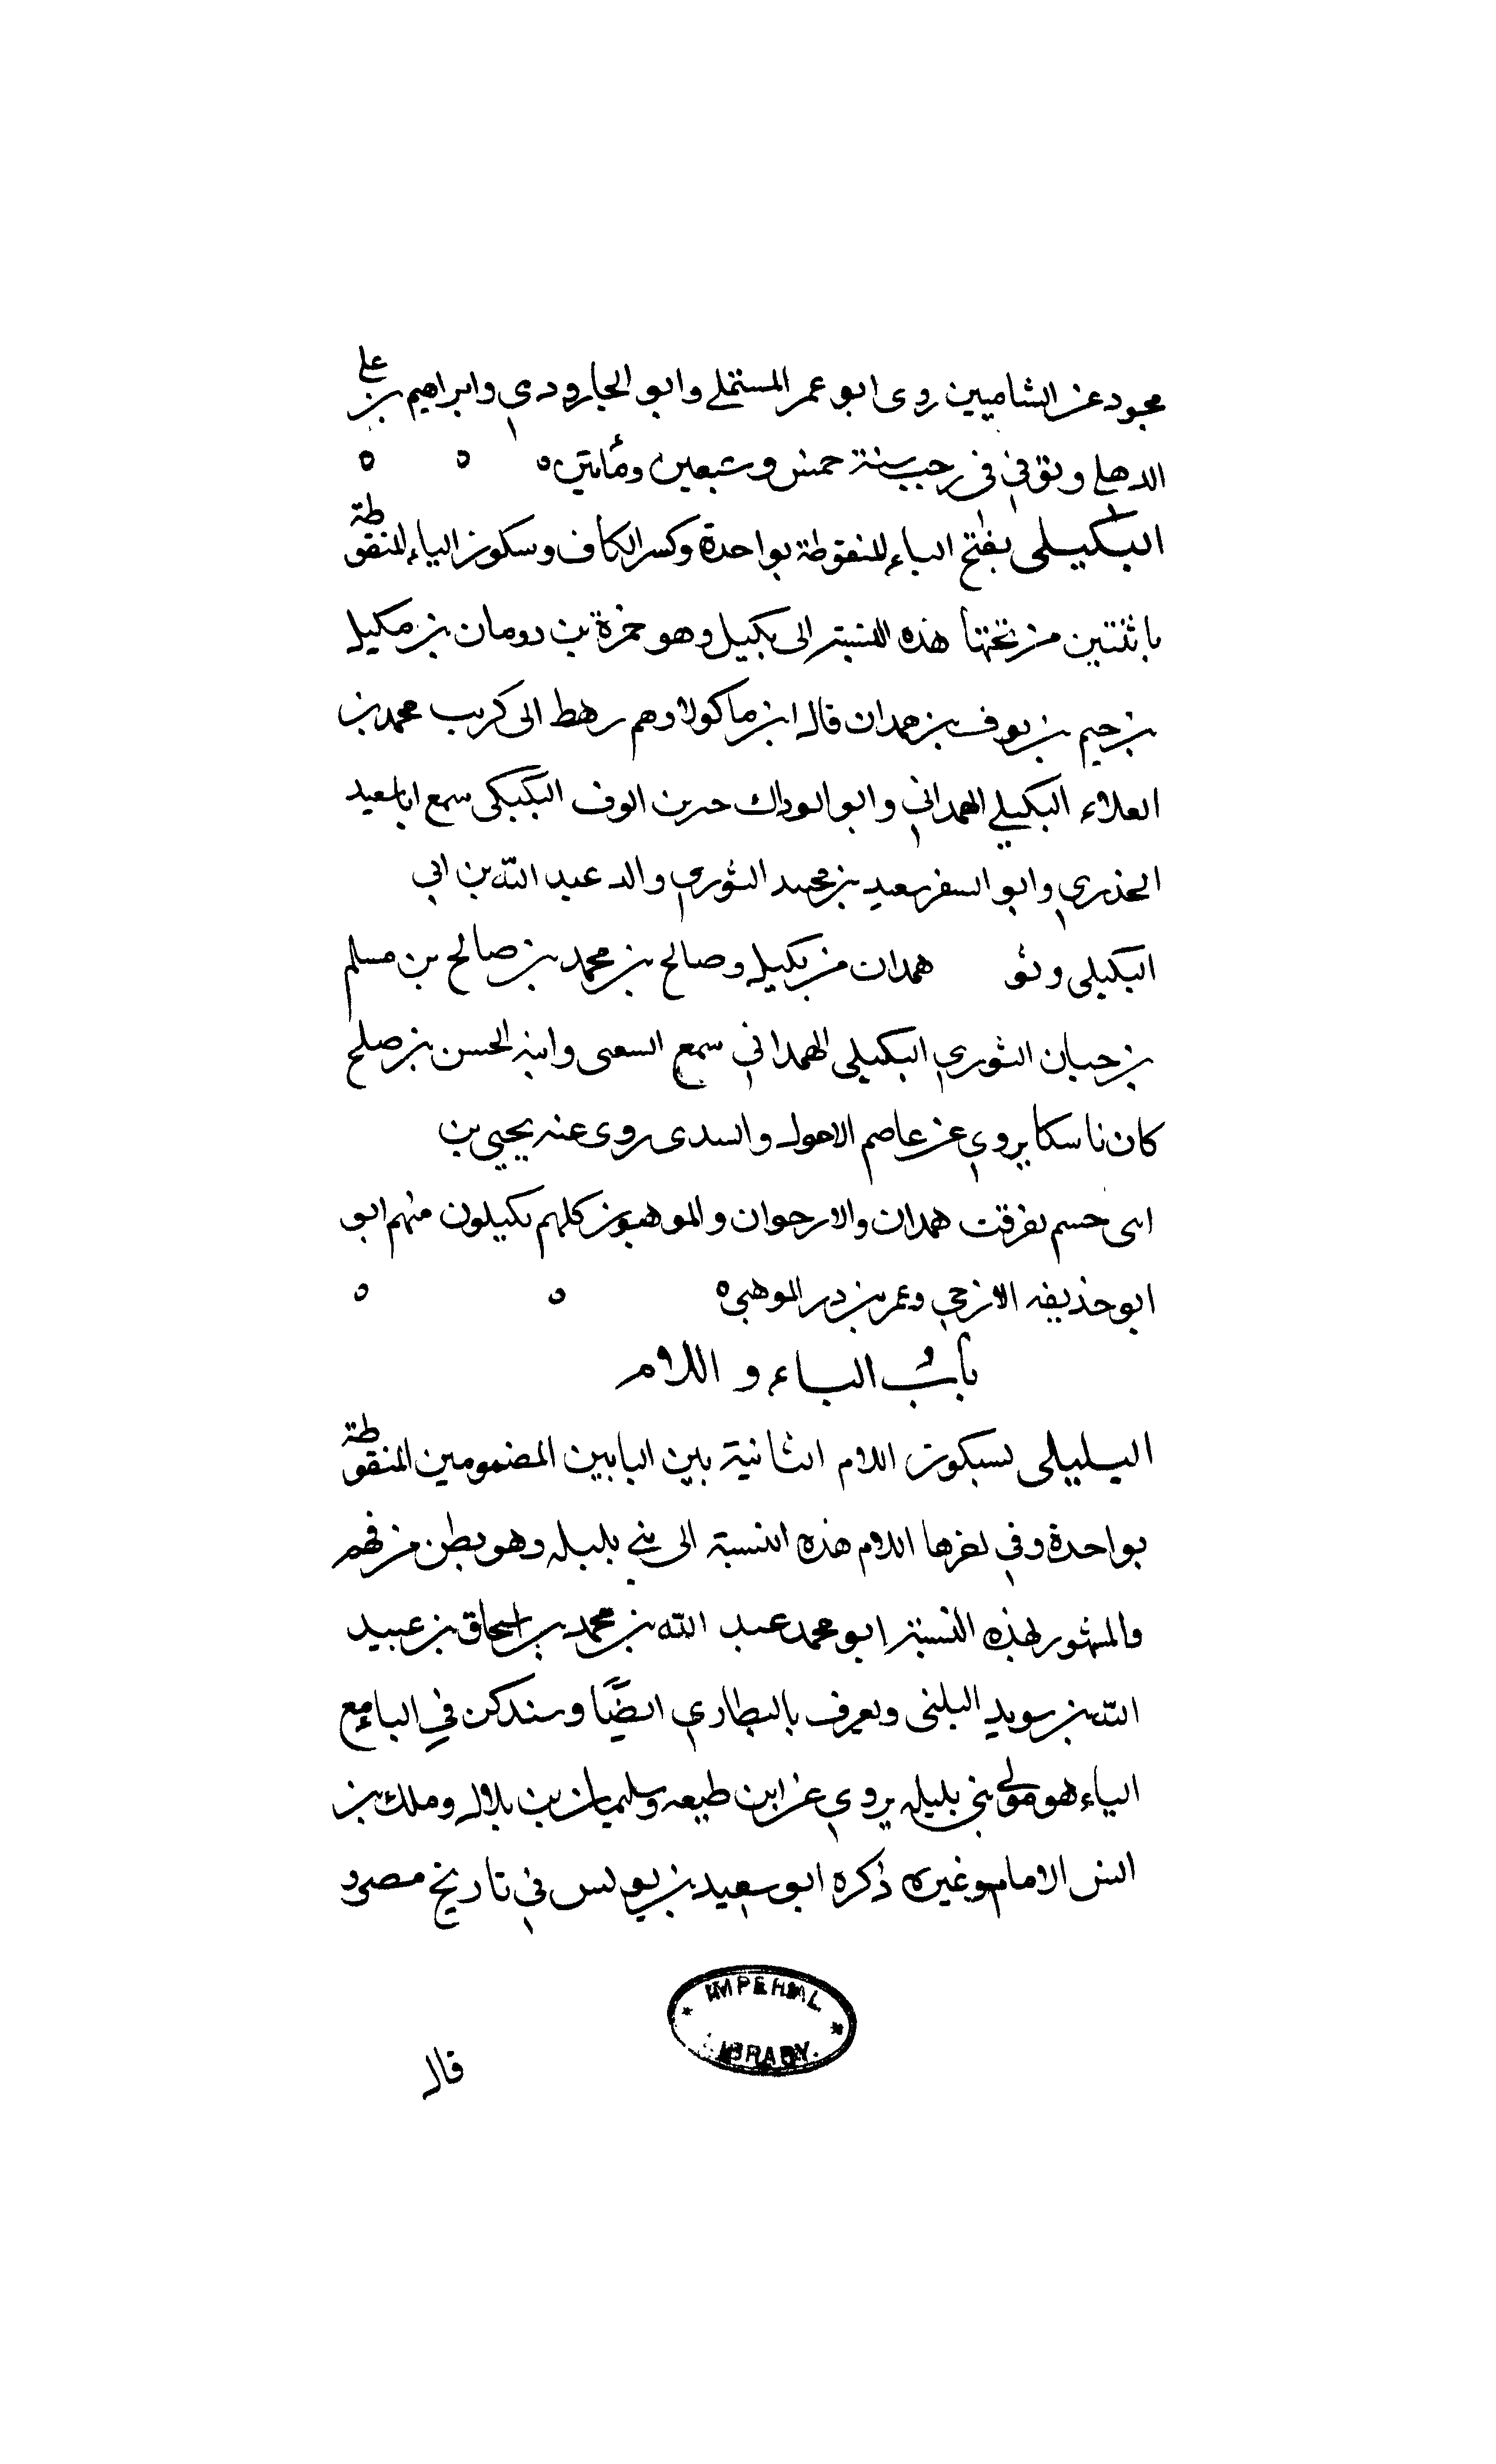 مجود عن الشاميين روى ابو عمر المستملي وابو الجارودي وابراهيم بن علي
الدهلي وتوفي في رجب سنة خمس وسبعين ومأتين ه ه ه
البكيلي بفتح الباء المنقوطة بواحدة وكسر الكاف وسكون الياء المنقوطة
باثنتين من تحتها هذه النسبة الى بكيل وهو حمزة بن دومان بن مكيل
بن جيم بن نوف بن همدان قاله ابن ماكولا وهم رهط الى كريب محمد بن
العلاء البكيلي الهمداني وابو الوداك حر بن الوف البكيكى سمع ابا سعيد
الخدري وابو السفر سعيد بن محمد الثوري والد عبد الله بن ابي
البكيلي وثو همدان من بكيل وصالح بن محمد بن صالح بن مسلم
بن حيان الثوري البكيلي الهمداني سمع السعى وابنه الحسن بن صلح
كان ناسكا يروي عن عاصم الاحول والسدى روى عنه يحيى بن
ابى حسم تفرقت همدان والارحوان والموهبون كلهم بكيلون منهم ابو
ابو حذيفه الارحبي وعمر بن در الموهبي ه ه ه
باب الباء و اللام
البلبلي بسكون اللام الثانية بين البابين المضمومين المنقوطة
بواحدة وفي اخرها اللام هذه النسبة الى بني بليله وهو بطن من فهم
والمشهور بهذه النسبة ابو محمد عبد الله بن محمد بن اسحاق بن عبيد
الله بن سويد البلنى ويعرف بالبطاري ايضًا وسنذكن في الباء مع
الياء هو مولى بني بليله يروي عن ابن طيعه وسليمان بن بلال وملك بن
انس الامام وغيره ذكره ابو سعيد بن يونس في تاريخ مصر و
IMPERIAL LIBRARY.
قال